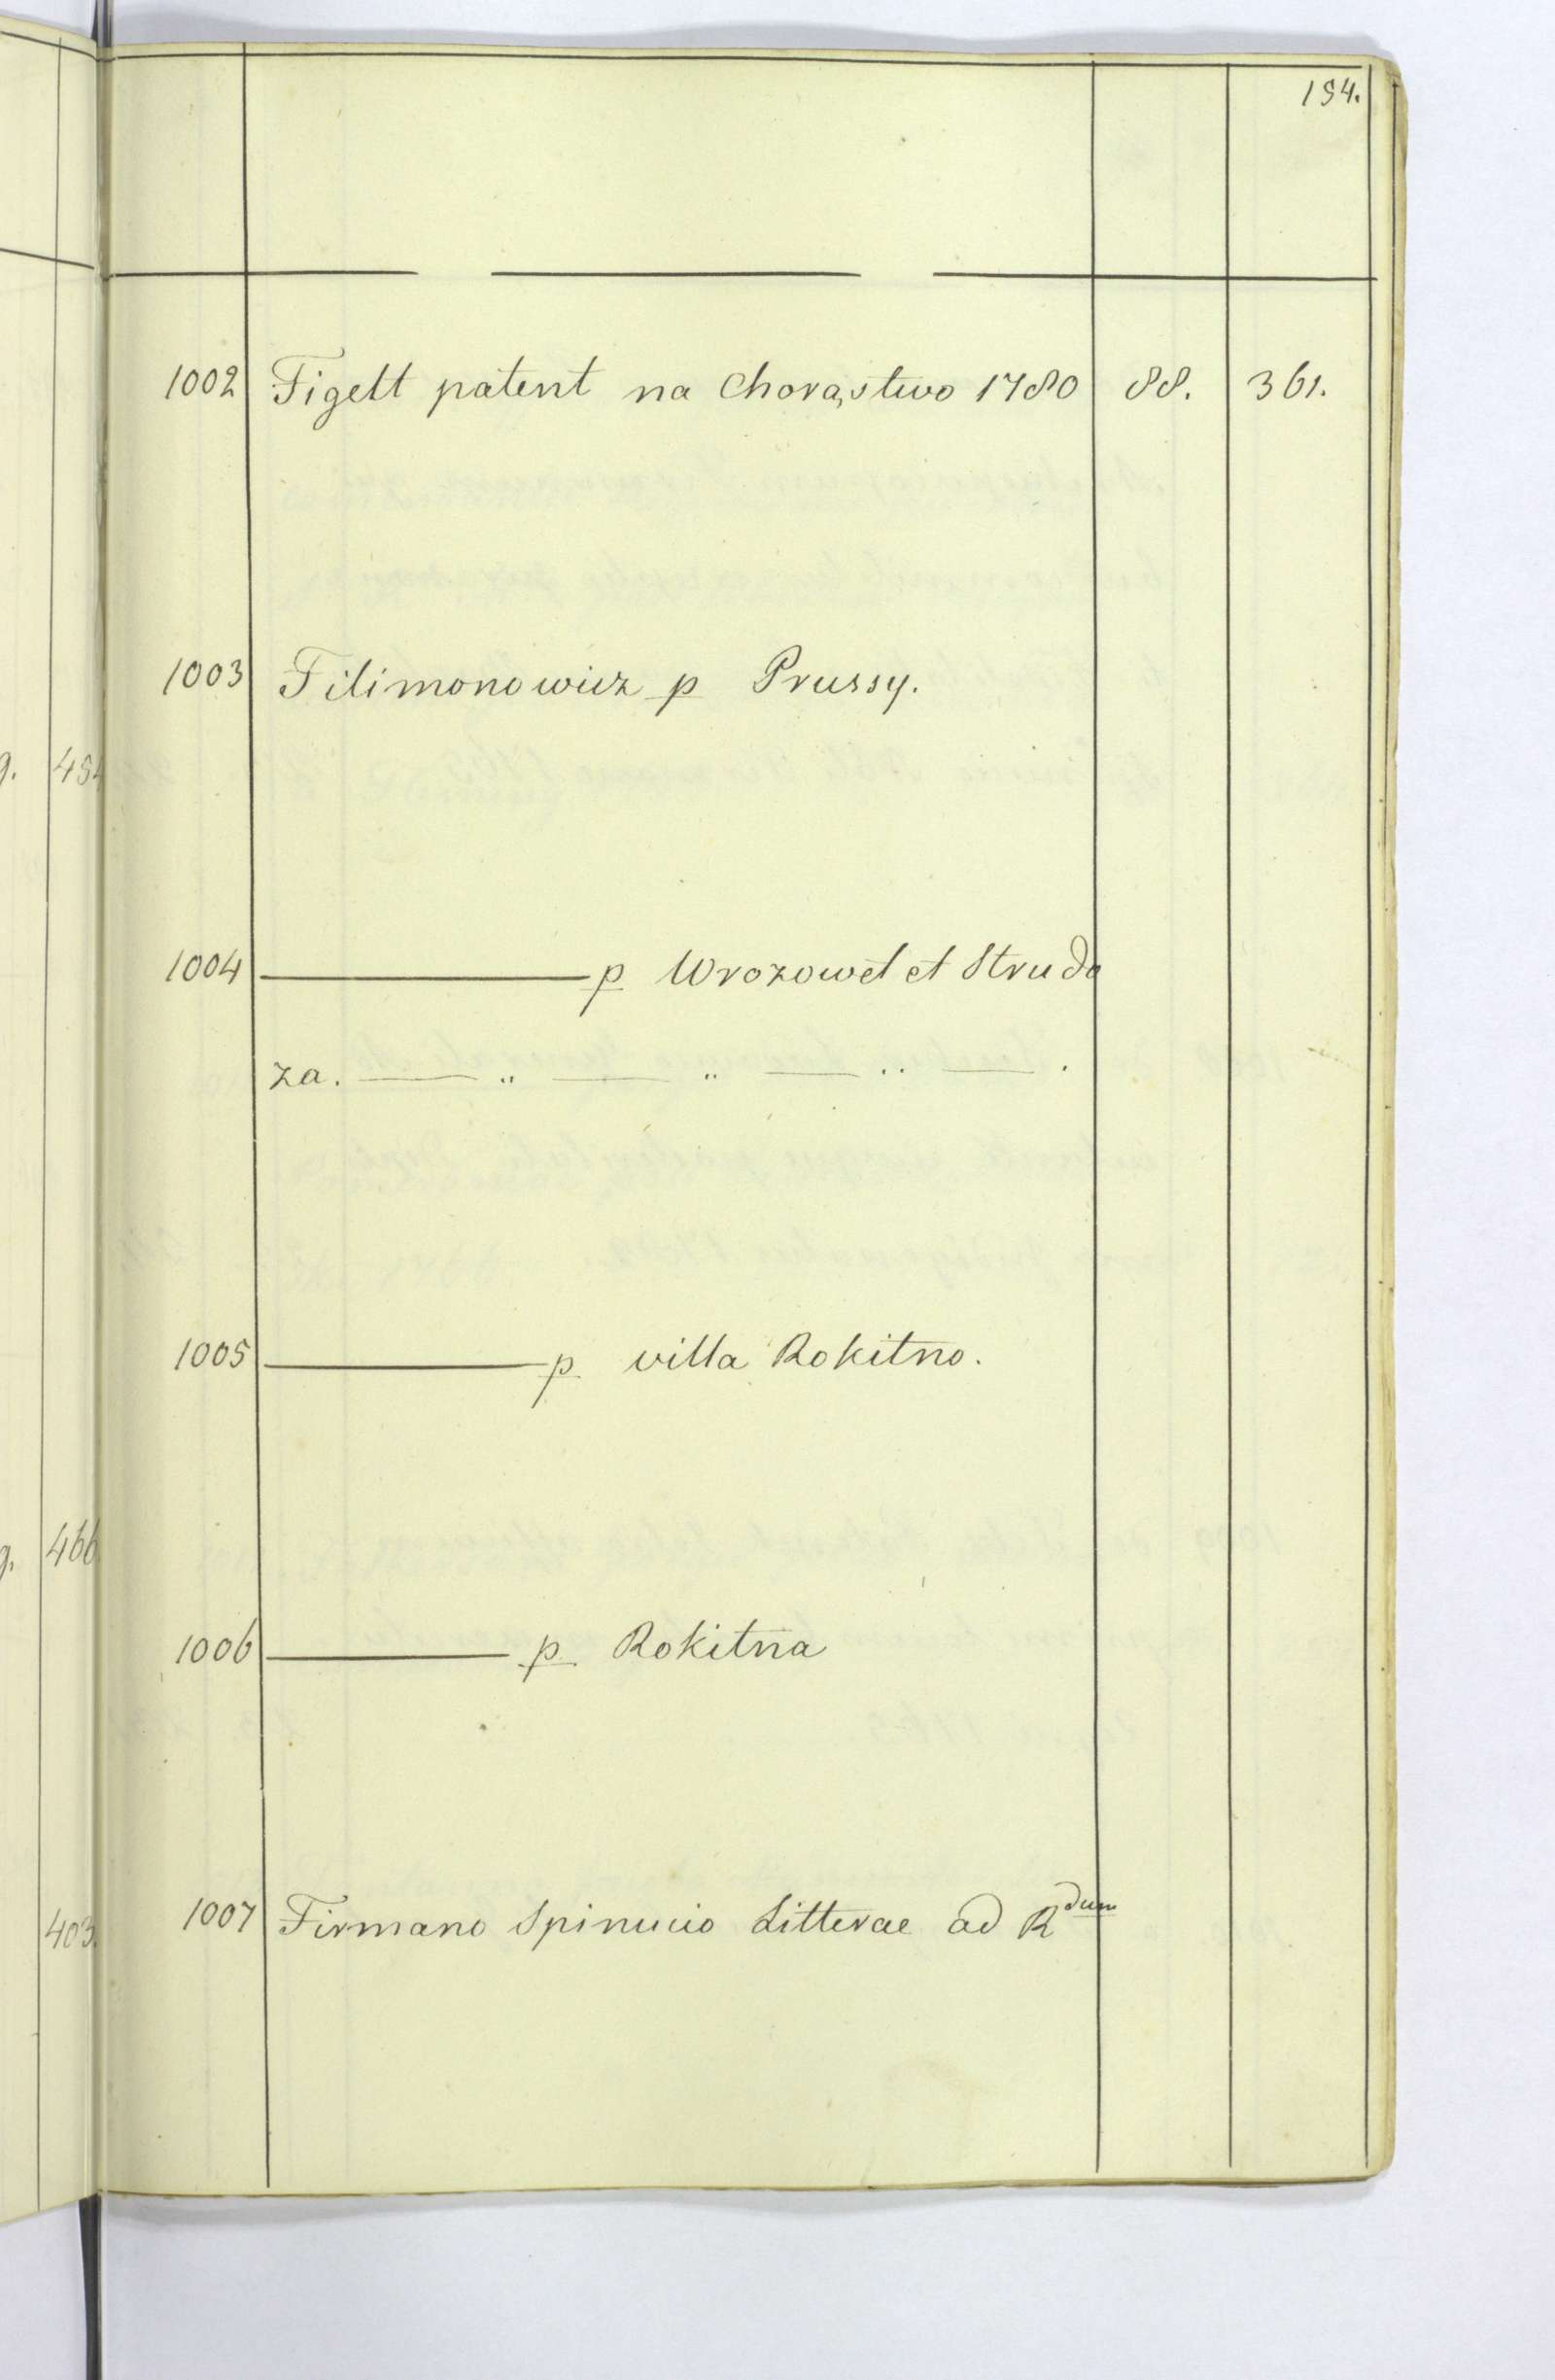 154.
1002 Figett patent na Chorąstwo 1780 88. 361.
1003 Filimonowicz p Prussy.
1004 ——— p Wrozowet et Strudo
za. — " — " — " — .
1005 ——— p villa Rokitno.
1006 ——— p Rokitna
1007 Firmano Spinucio Litterae ad Rdum
466
403.